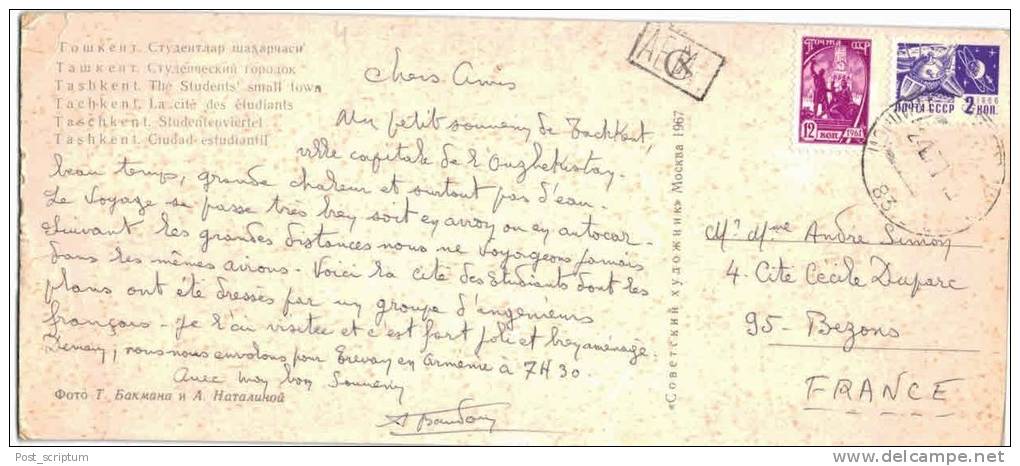 Тошкент. Студентлар шаҳарчаси
Ташкент. Студенческий городок
Tashkent. The Students' small town
Tachkent. La cité des étudiants
Taschkent. Studentenviertel
Tashkent. Ciudad estudiantil
Chers Amis
Un petit souveny de Tachkent,
ville capitale de l'Ouzbekistay.
beau temps, grande chaleur et surtout pas d'eau.
Le Voyage se passe très bey soit ey avioy ou ey autocar.
Suivant les grandes distances nous ne voyageons jamais
dans les mêmes avions. Voici la cité des étudiants dont les
plans ont été dressés par uy groupe d'ingénieurs
français. Je l'ai visitée et c'est fort joli et bey aménagé.
Demay, nous nous envolons pour Erevay ey Arménie à 7H30.
Avec moy boy Souveny
Фото Т. Бакмана и А. Наталиной
«Советский художник» Москва 1967
ПОЧТА СССР
12 КОП. 1961
1966
ПОЧТА СССР 2 КОП.
83
Mr Mme André Simoy
4. Cité Cécile Duparc
95- Bezons
FRANCE
Post_scriptum
http://www.delcampe.net